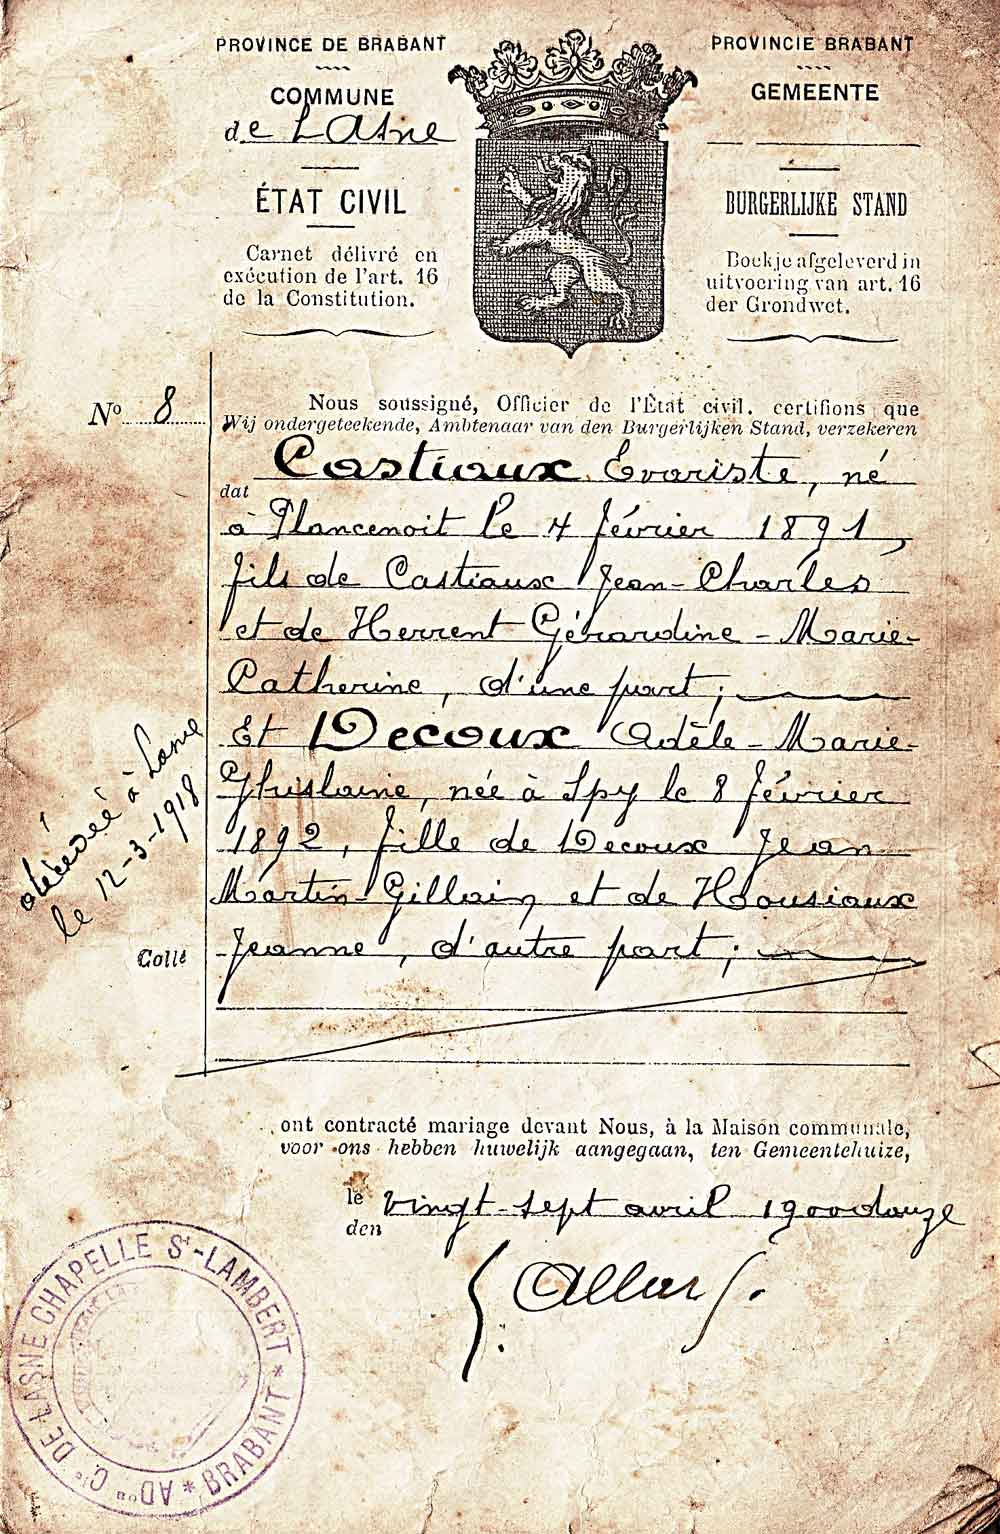 PROVINCE DE BRABANT
COMMUNE
de Lasne
ÉTAT CIVIL
Carnet délivré en
exécution de l'art. 16
de la Constitution.
PROVINCIE BRABANT
GEMEENTE
BURGERLIJKE STAND
Boekje afgeleverd in
uitvoering van art. 16
der Grondwet.
No 8
Nous soussigné, Officier de l'État civil, certifions que
Wij ondergeteekende, Ambtenaar van den Burgerlijken Stand, verzekeren
dat Castiaux Evariste, né
à Plancenoit le 4 février 1891,
fils de Castiaux Jean-Charles
et de Herrent Gérardine-Marie-
Catherine, d'une part;
Et Decoux Adèle-Marie-
Ghislaine, née à Spy le 8 février
1892, fille de Decoux Jean
Martin-Gillain et de Housiaux
Jeanne, d'autre part;
à Lasne
le 12-3-1918
Collé
ont contracté mariage devant Nous, à la Maison communale,
voor ons hebben huwelijk aangegaan, ten Gemeentehuize,
le vingt-sept avril 1900douze
den
Allard
ADon Cle DE LASNE CHAPELLE St-LAMBERT * BRABANT *